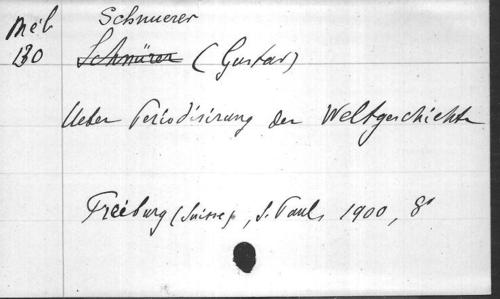 Méb
130
Schnuerer
Schnürer (Gustav)
Ueber Periodisirung der Weltgeschichte
Freiburg (Suisse), S. Paul, 1900, 8°